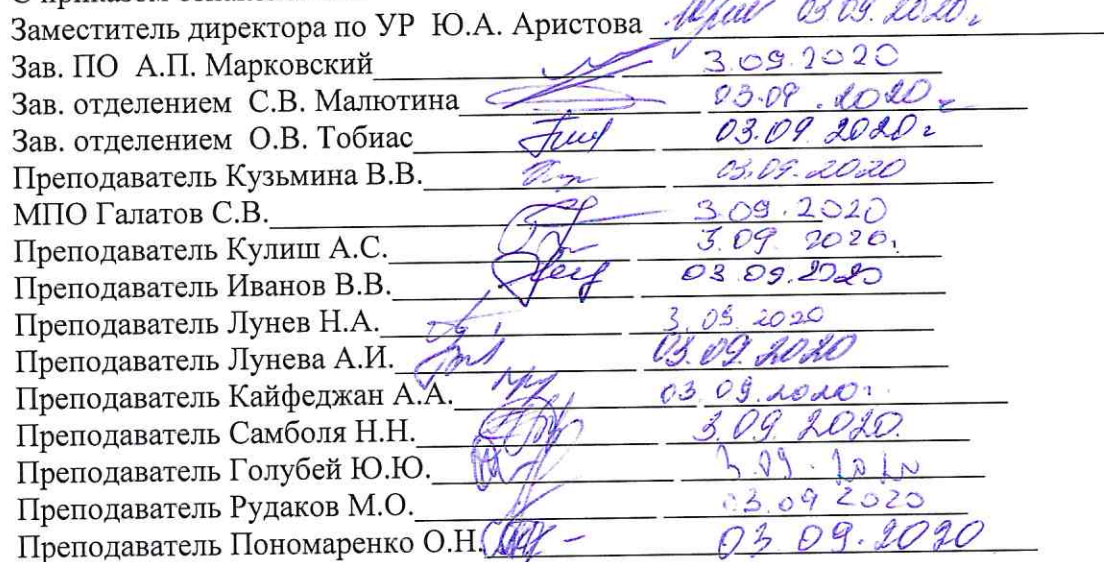 С приказом
Заместитель директора по УР Ю.А. Аристова 03.09.2020г
Зав. ПО А.П. Марковский 3.09.2020
Зав. отделением С.В. Малютина 03.09.2020г
Зав. отделением О.В. Тобиас 03.09.2020г
Преподаватель Кузьмина В.В. 03.09.2020
МПО Галатов С.В. 3.09.2020
Преподаватель Кулиш А.С. 3.09.2020г
Преподаватель Иванов В.В. 03.09.2020
Преподаватель Лунев Н.А. 3.09.2020
Преподаватель Лунева А.И. 03.09.2020
Преподаватель Кайфеджан А.А. 03.09.2020г
Преподаватель Самболя Н.Н. 3.09.2020.
Преподаватель Голубей Ю.Ю. 3.09.2020
Преподаватель Рудаков М.О. 03.09 2020
Преподаватель Пономаренко О.Н. 03.09.2020